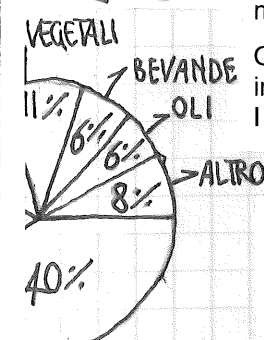 VEGETALI
BEVANDE
OLI
ALTRO
11%
6%
6%
8%
40%